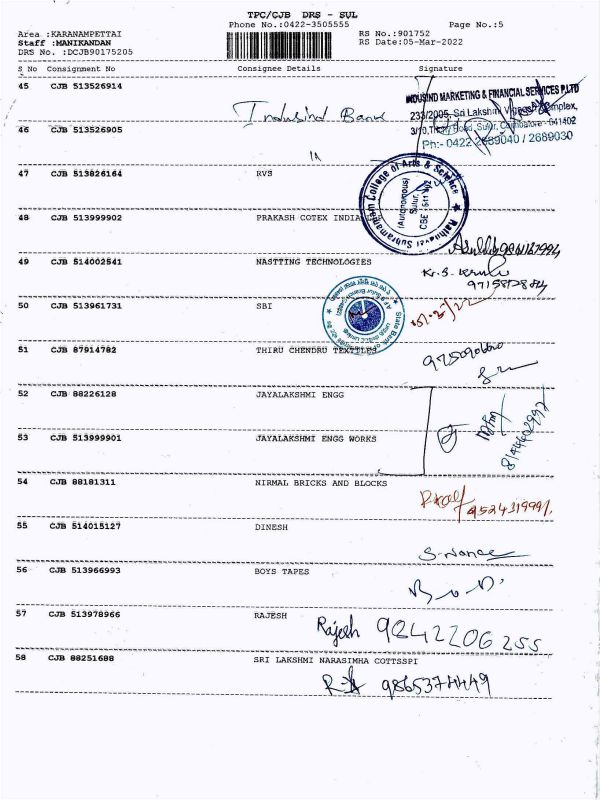 TPC/CJB DRS - SUL
Phone No.:0422-3505555 Page No.:5
Area :KARANAMPETTAI RS No.:901752
Staff :MANIKANDAN RS Date:05-Mar-2022
DRS No. :DCJB90175205
S No Consignment No Consignee Details Signature
45 CJB 513526914
INDUSIND MARKETING & FINANCIAL SERVICES P.LTD
233/2005, Sri Lakshmi Complex,
Indusind Bank
46 CJB 513526905
3/10, Trichy Road, Sulur, Coimbatore - 641402
Ph:- 0422-2689040 / 2689030
47 CJB 513826164 RVS
Rathnavel Subramaniam College of Arts & Science
(Autonomous)
Sulur,
48 CJB 513999902 PRAKASH COTEX INDIA
49 CJB 514002541 NASTTING TECHNOLOGIES
9715872884
50 CJB 513961731 SBI
51 CJB 87914782 THIRU CHENDRU TEXTILES
52 CJB 88226128 JAYALAKSHMI ENGG
53 CJB 513999901 JAYALAKSHMI ENGG WORKS
54 CJB 88181311 NIRMAL BRICKS AND BLOCKS
55 CJB 514015127 DINESH
56 CJB 513966993 BOYS TAPES
57 CJB 513978966 RAJESH
Rajesh 9842206255
58 CJB 88251688 SRI LAKSHMI NARASIMHA COTTSSPI
9865374449